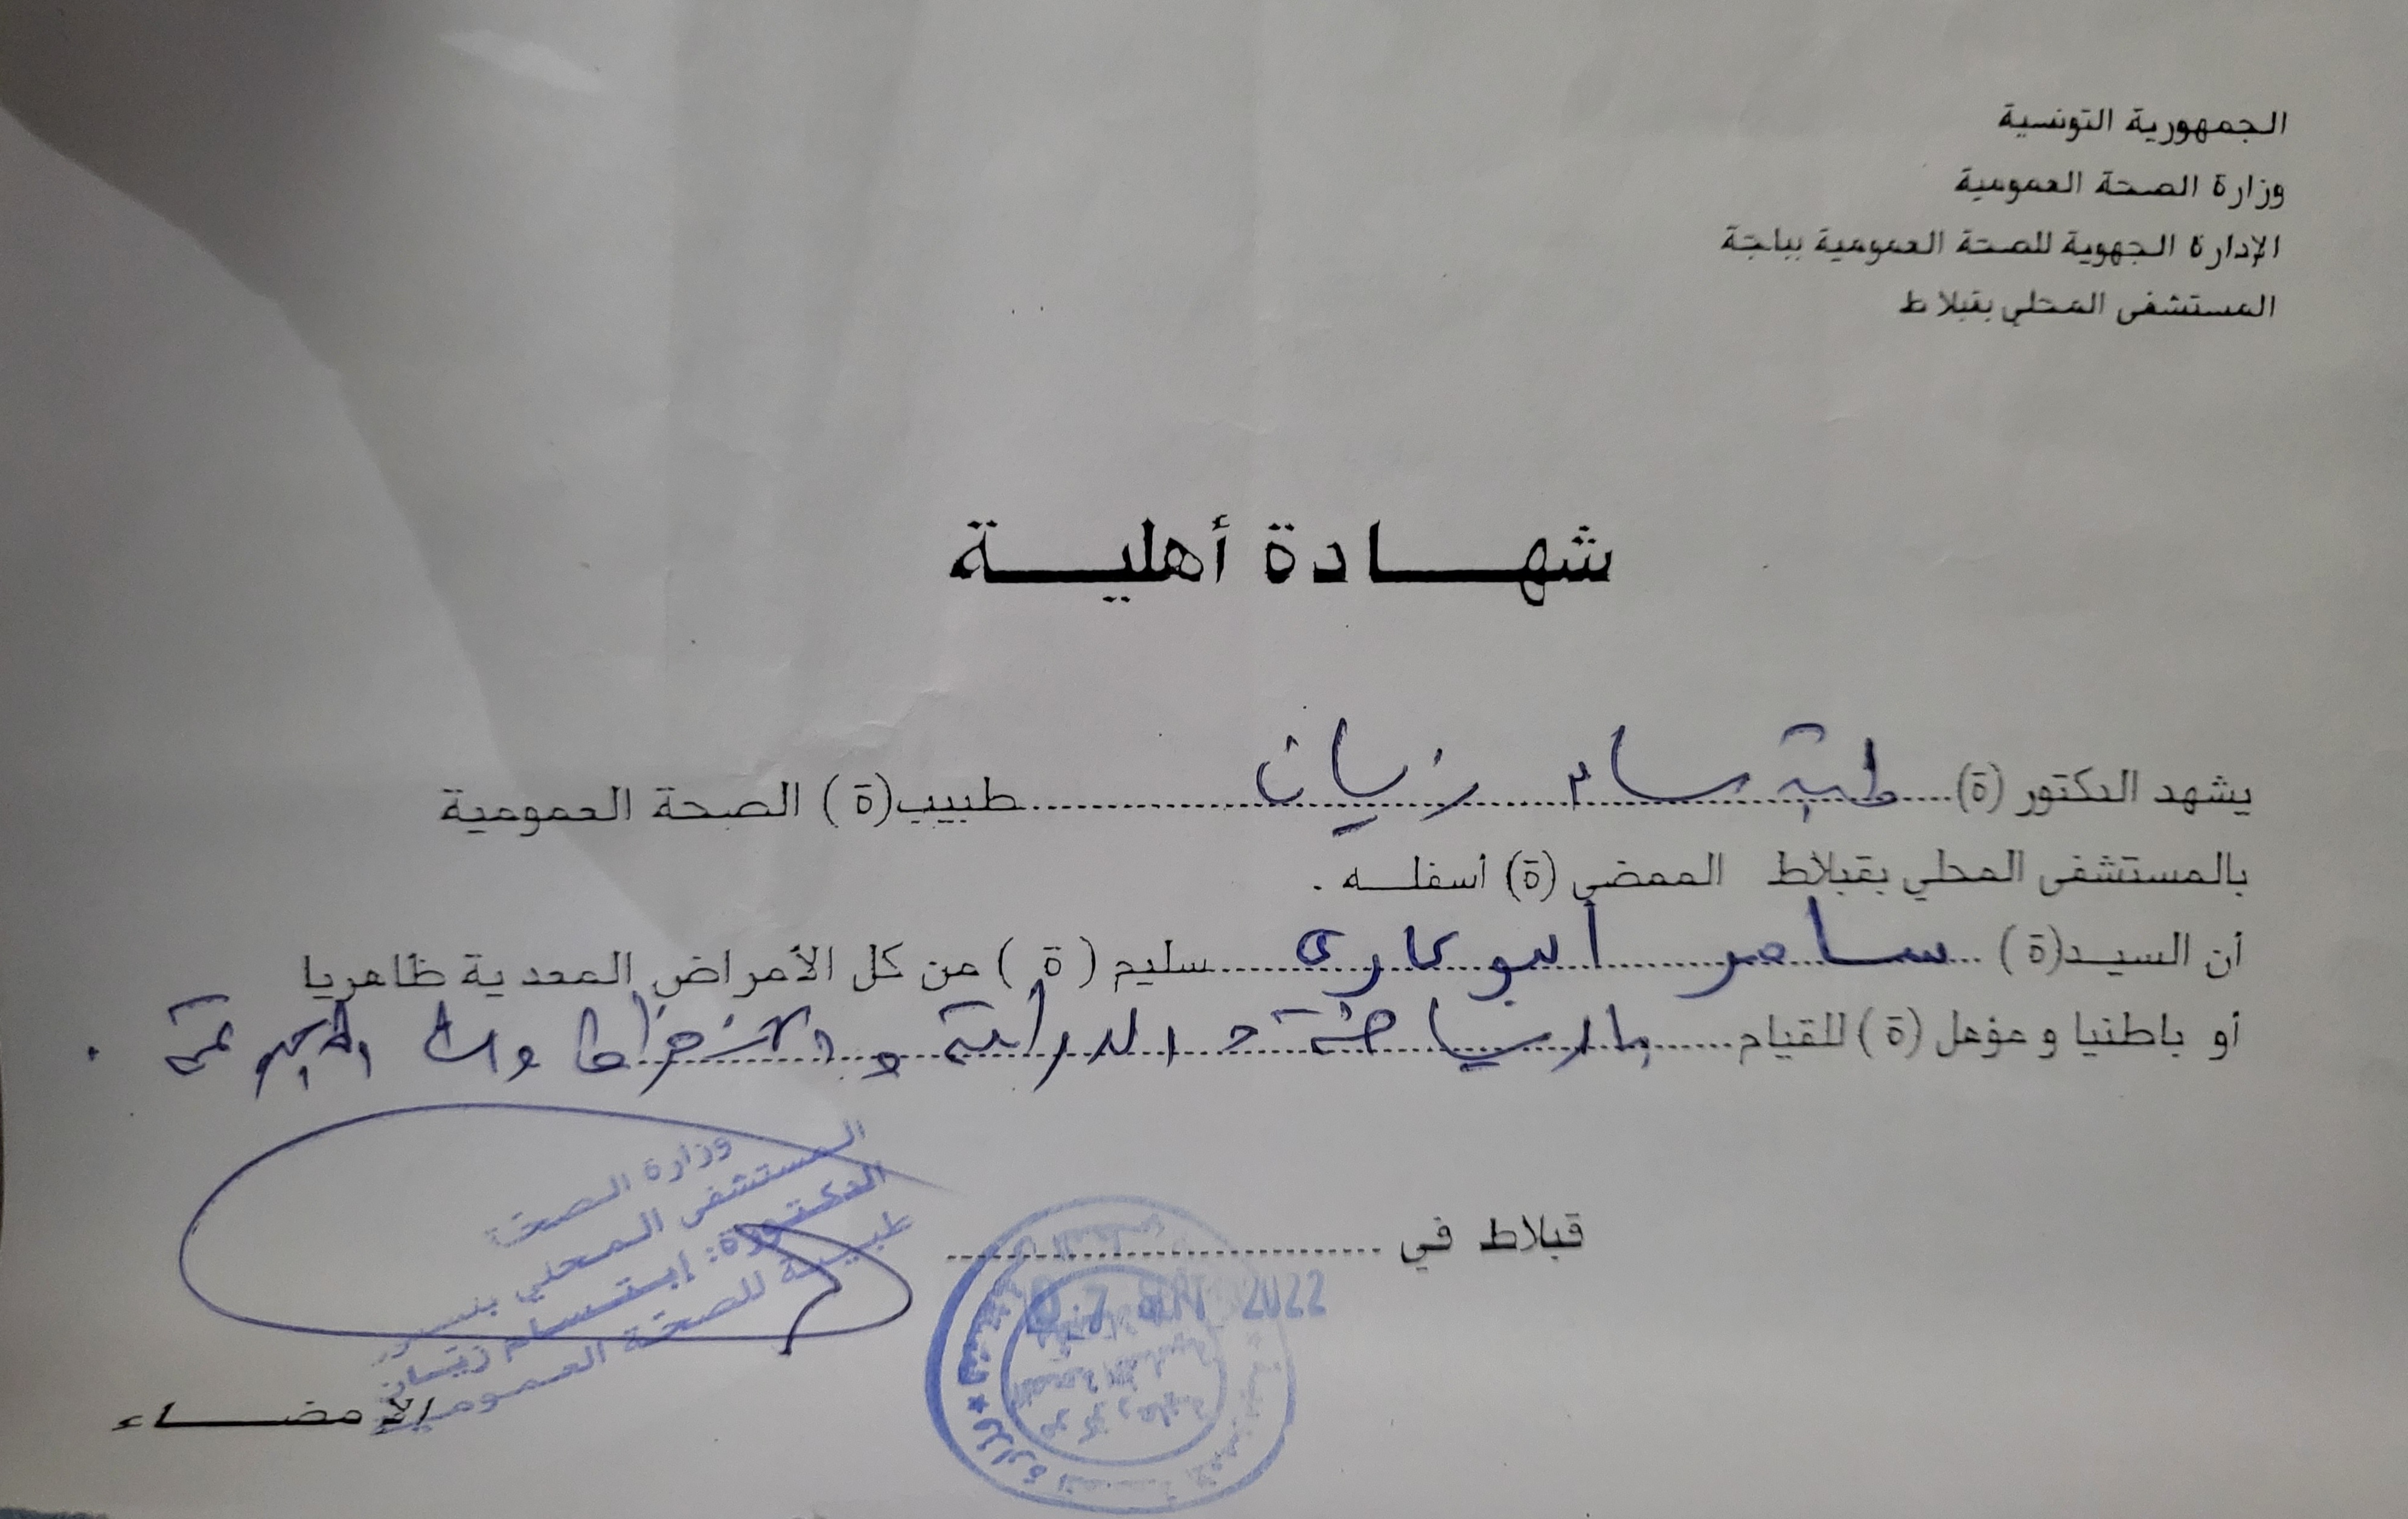 الجمهورية التونسية
وزارة الصحة العمومية
الإدارة الجهوية للصحة العمومية بباجة
المستشفى المحلي بقبلاط
شهادة أهلية
يشهد الدكتور (ة) ... زيان طبيب(ة) الصحة العمومية
بالمستشفى المحلي بقبلاط الممضي (ة) أسفله .
أن السيد(ة) سامر سليم (ة) من كل الأمراض المعدية ظاهريا
أو باطنيا و مؤهل (ة) للقيام بالرياضة و الدراسة و
وزارة الصحة
المستشفى المحلي
الدكتورة: إبتسام زيان
طبيبة للصحة العمومية
قبلاط في
07 SEPT 2022
الأمضاء